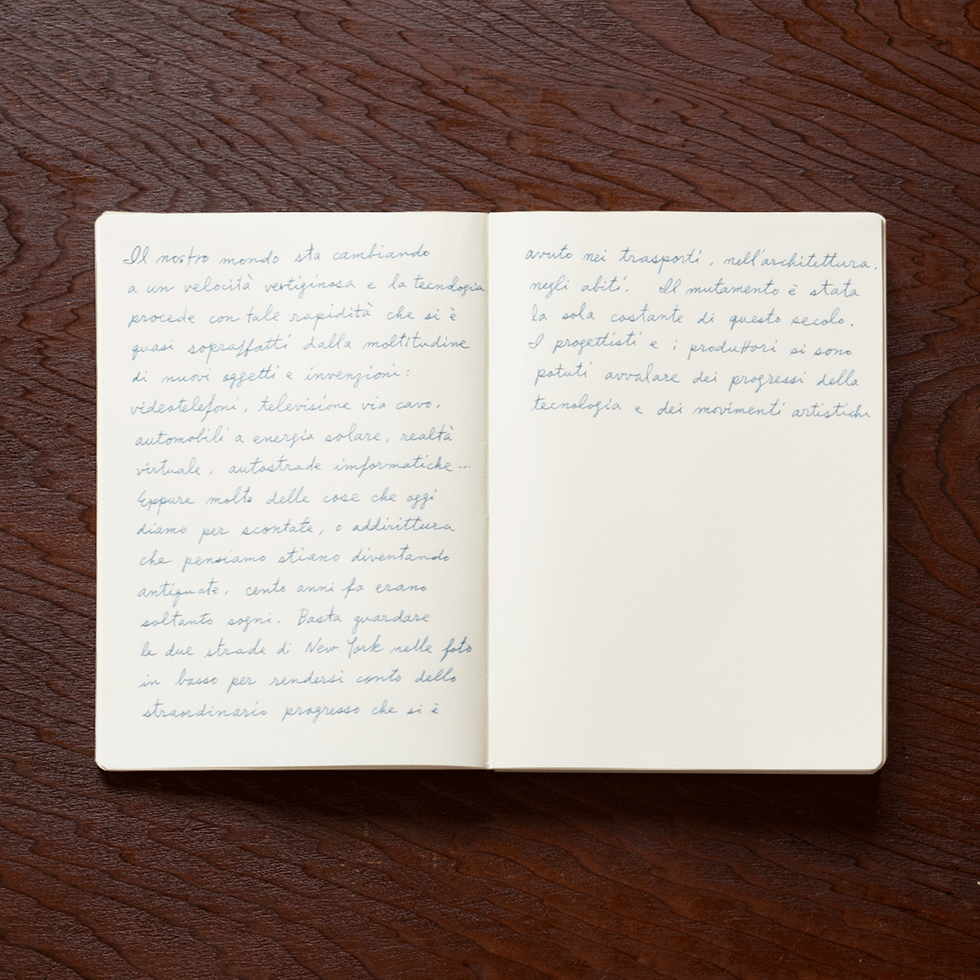 Il nostro mondo sta cambiando
a un velocità vertiginosa e la tecnologia
procede con tale rapidità che si è
quasi sopraffatti dalla moltitudine
di nuovi oggetti e invenzioni:
videotelefoni, televisione via cavo,
automobili a energia solare, realtà
virtuale, autostrade imformatiche...
Eppure molte delle cose che oggi
diamo per scontate, o addirittura
che pensiamo stiano diventando
antiquate, cento anni fa erano
soltanto sogni. Basta guardare
le due strade di New York nelle foto
in basso per rendersi conto dello
straordinario progresso che si è
avuto nei trasporti, nell'architettura,
negli abiti. Il mutamento è stata
la sola costante di questo secolo.
I progettisti e i produttori si sono
potuti avvalare dei progressi della
tecnologia e dei movimenti artistiche